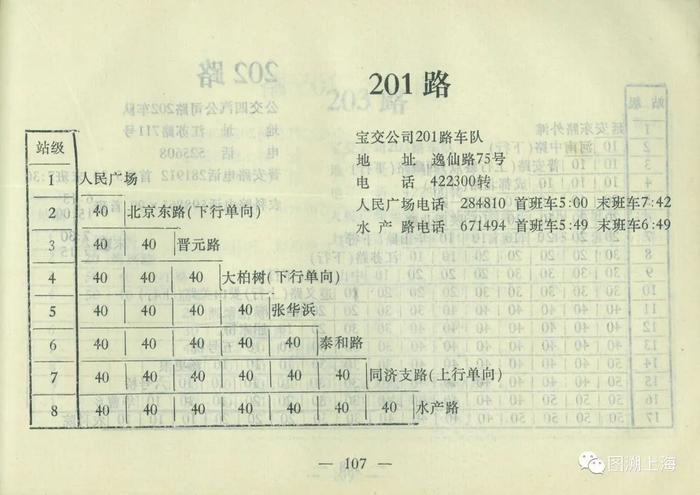 201 路
宝交公司201路车队
地 址 逸仙路75号
电 话 422300转
人民广场电话 284810 首班车5:00 末班车7:42
水产路电话 671494 首班车5:49 末班车6:49
站级
1 人民广场
2 40 北京东路(下行单向)
3 40 40 晋元路
4 40 40 40 大柏树(下行单向)
5 40 40 40 40 张华浜
6 40 40 40 40 40 泰和路
7 40 40 40 40 40 40 同济支路(上行单向)
8 40 40 40 40 40 40 40 水产路
— 107 —
图溯上海